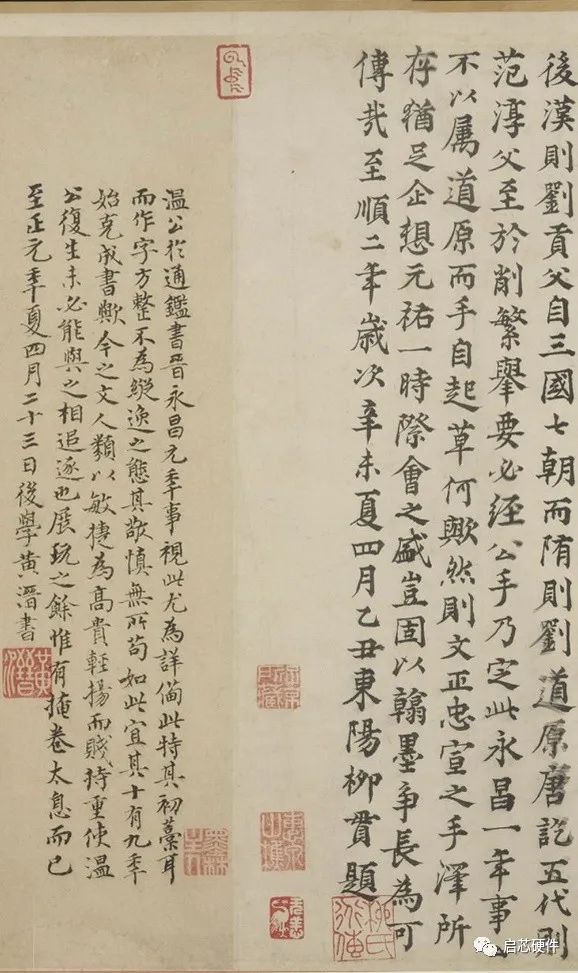 後漢則劉貢父自三國七朝而隋則劉道原唐訖五代則
范淳父至於削繁舉要必經公手乃定此永昌一年事
不以属道原而手自起草何歟然則文正忠宣之手澤所
存猶足企想元祐一時際會之盛豈固以翰墨爭長為可
傳哉至順二年歲次辛未夏四月乙丑東陽柳貫題
温公於通鑑書晉永昌元年事視此尤為詳備此特其初藁耳
而作字方整不為縱逸之態其敬慎無所苟如此宜其十有九年
始克成書歟今之文人類以敏捷為高貴輕揚而賤持重使温
公復生未必能與之相追逐也展玩之餘惟有掩卷太息而已
至正元年夏四月二十三日後學黃溍書
黃溍
启芯硬件